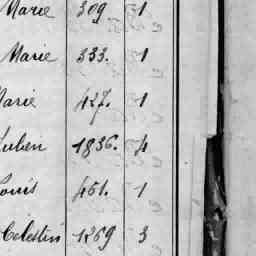 Marie 309 1
Marie 333. 1
Marie 427. 1
Luben 1836. 4
Louis 461. 1
Celestin 1269 3